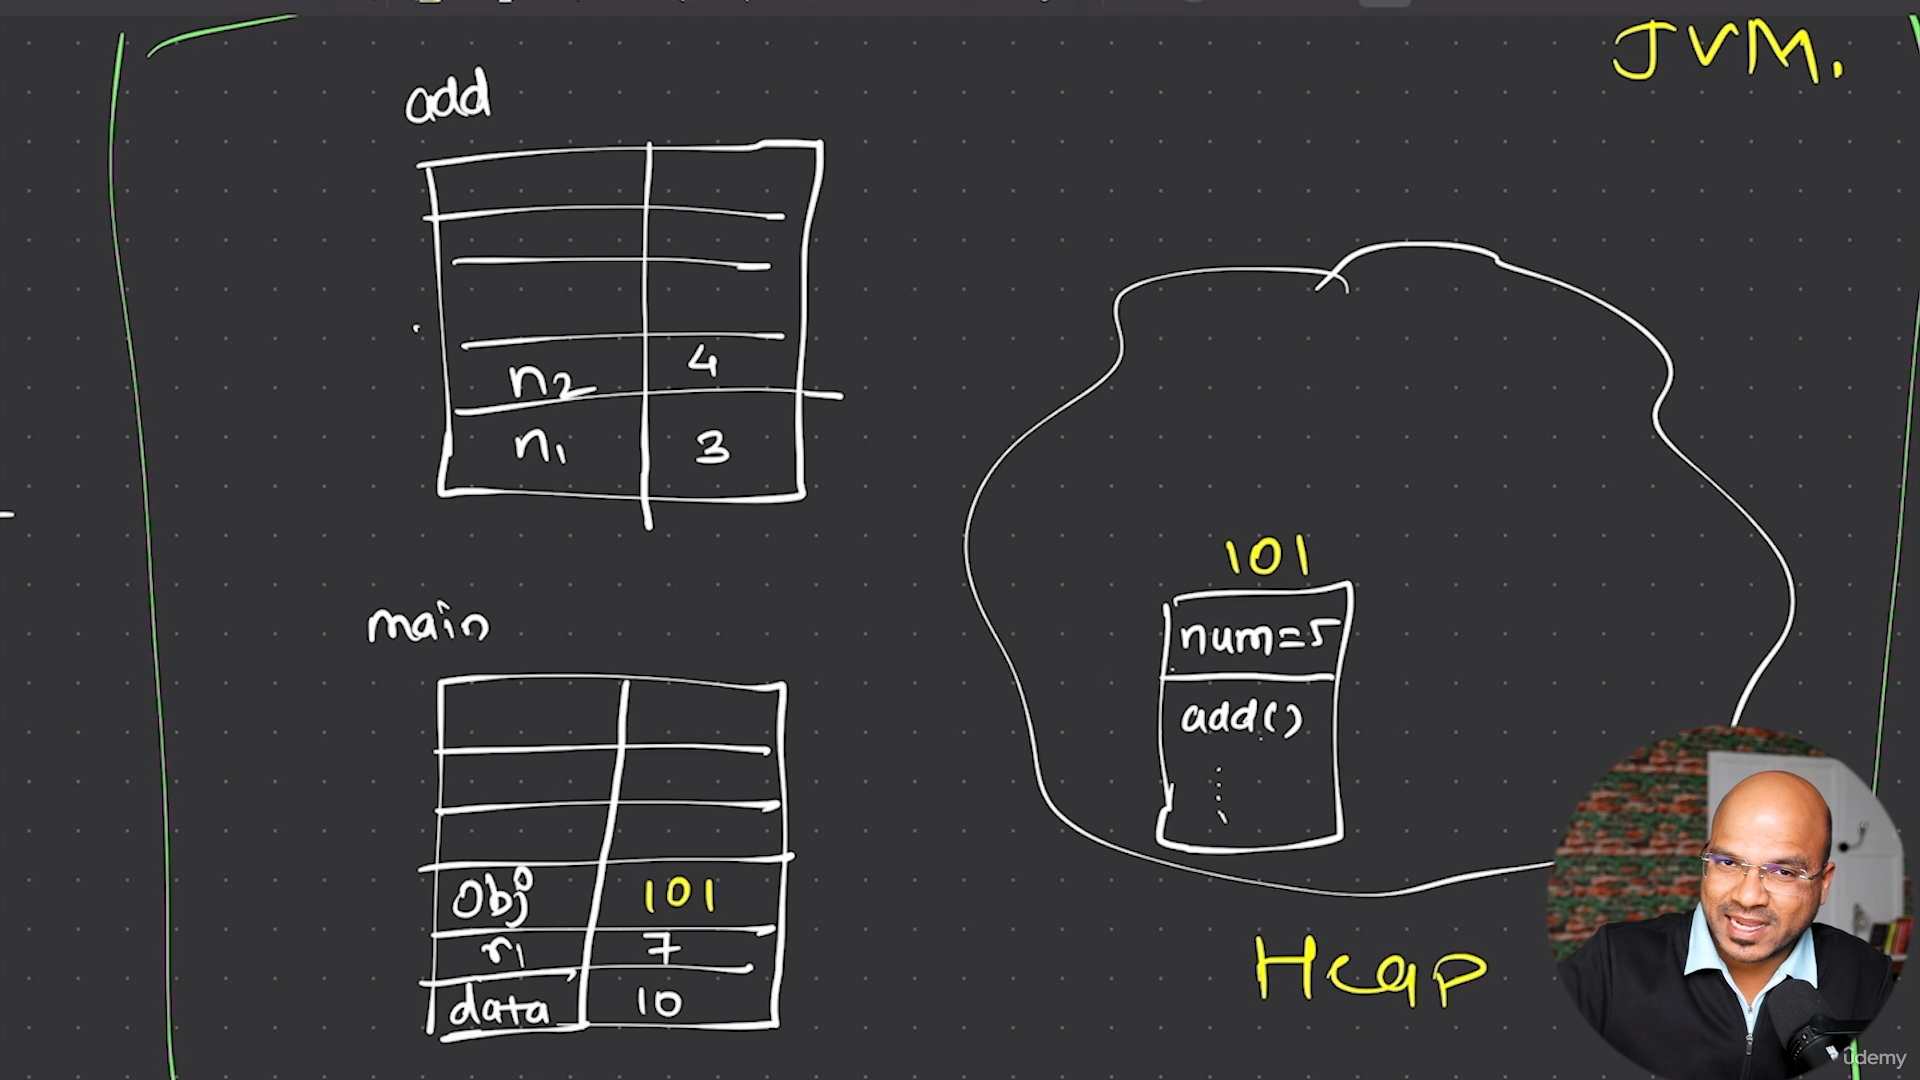 JVM.
add
n2 4
n1 3
main
obj 101
r1 7
data 10
101
num=5
add()
Heap
ûdemy